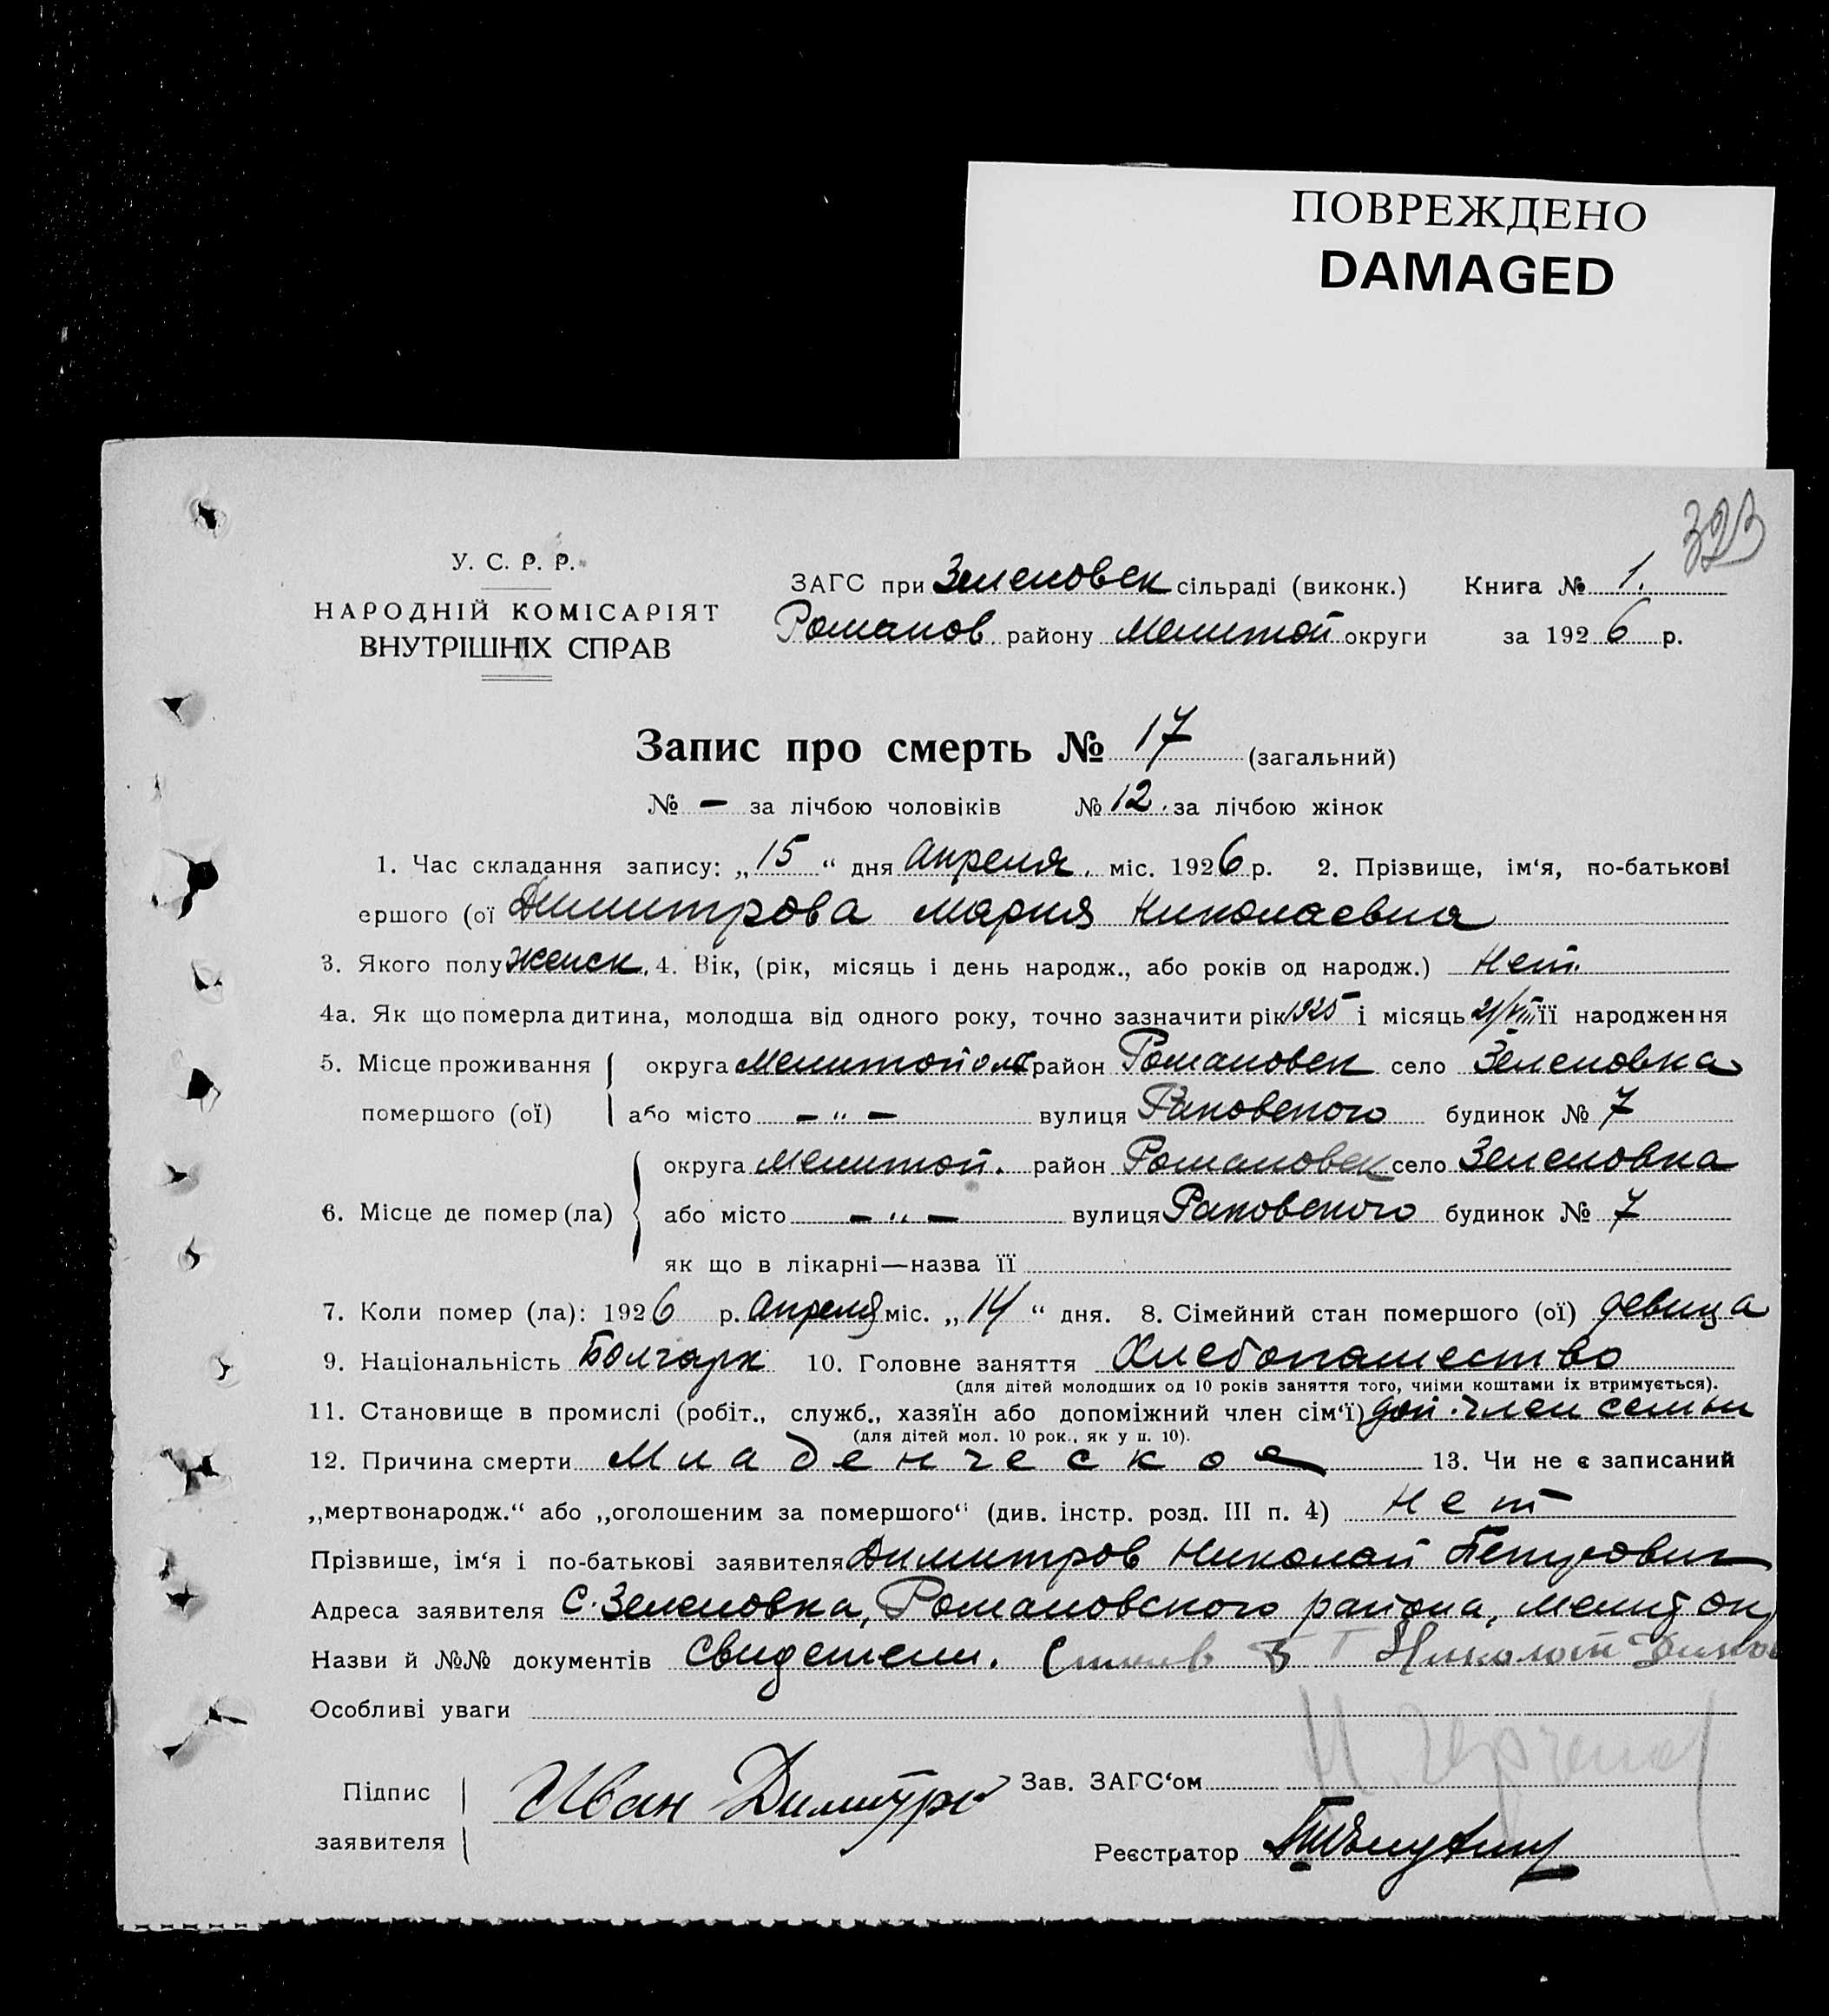 ПОВРЕЖДЕНО
DAMAGED
323
У. С. Р. Р.
НАРОДНІЙ КОМІСАРІЯТ
ВНУТРІШНІХ СПРАВ
ЗАГС при Зеленовск сільраді (виконк.) Книга № 1.
Романов. району Мелитоп округи за 1926 р.
Запис про смерть № 17 (загальний)
№ — за лічбою чоловіків № 12. за лічбою жінок
1. Час складання запису: „15“ дня Апреля. міс. 1926 р. 2. Прізвище, ім‘я, по-батькові
ершого (ої Димитрова Мария Николаевна
3. Якого полу Женск. 4. Вік, (рік, місяць і день народж., або років од народж.) Нет.
4а. Як що померла дитина, молодша від одного року, точно зазначити рік 1925 і місяць 21/VIII її народження
5. Місце проживання округа Мелитополь район Романовск село Зеленовка
помершого (ої) або місто — „ — вулиця Раковского будинок № 7
округа Мелитоп. район Романовск село Зеленовка
6. Місце де помер (ла) або місто — „ — вулиця Раковского будинок № 7
як що в лікарні—назва її
7. Коли помер (ла): 1926 р. Апреля міс. „14“ дня. 8. Сімейний стан помершого (ої) девица
9. Національність Болгарк 10. Головне заняття Хлебопашество
(для дітей молодших од 10 років заняття того, чиїми коштами їх втримується).
11. Становище в промислі (робіт., служб., хазяїн або допоміжний член сім‘ї) доп. член семьи
(для дітей мол. 10 рок., як у п. 10).
12. Причина смерти Младенческое 13. Чи не є записаний
„мертвонародж.“ або „оголошеним за помершого“ (див. інстр. розд. III п. 4) Нет
Прізвише, ім‘я і по-батькові заявителя Димитров Николай Петрович
Адреса заявителя С. Зеленовка, Романовского района, Мелит ок
Назви й №№ документів Свидетели. Николай
Особливі уваги
Підпис Иван Димитров Зав. ЗАГС‘ом
заявителя
Реєстратор